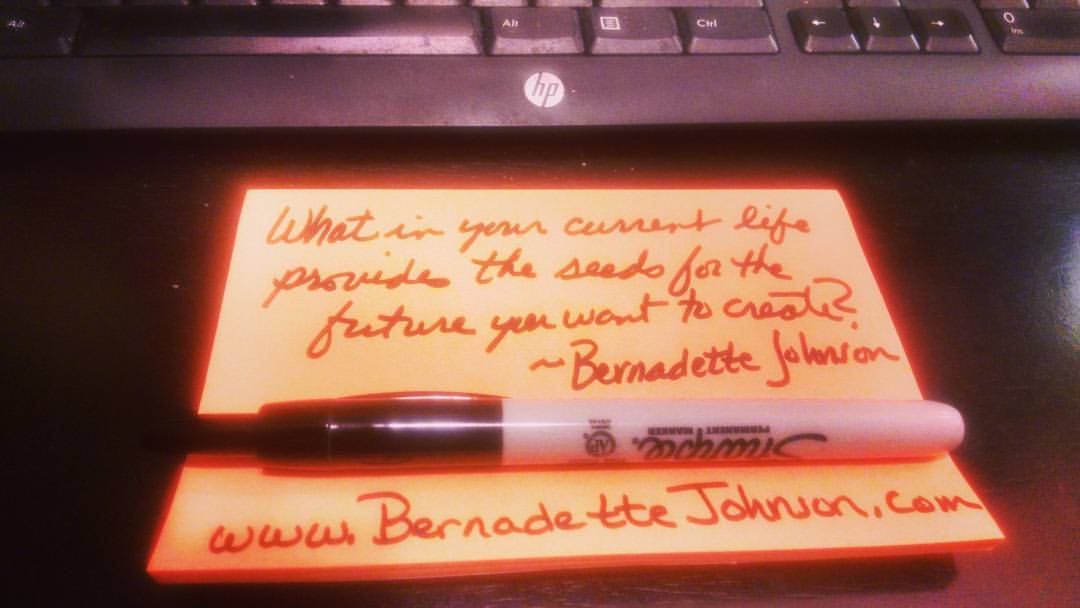 Alt
Alt
Ctrl
←
↓
→
0
Ins
hp
What in your current life
provides the seeds for the
future you want to create?
~Bernadette Johnson
Sharpie.
PERMANENT MARKER
AP
www.BernadetteJohnson.com